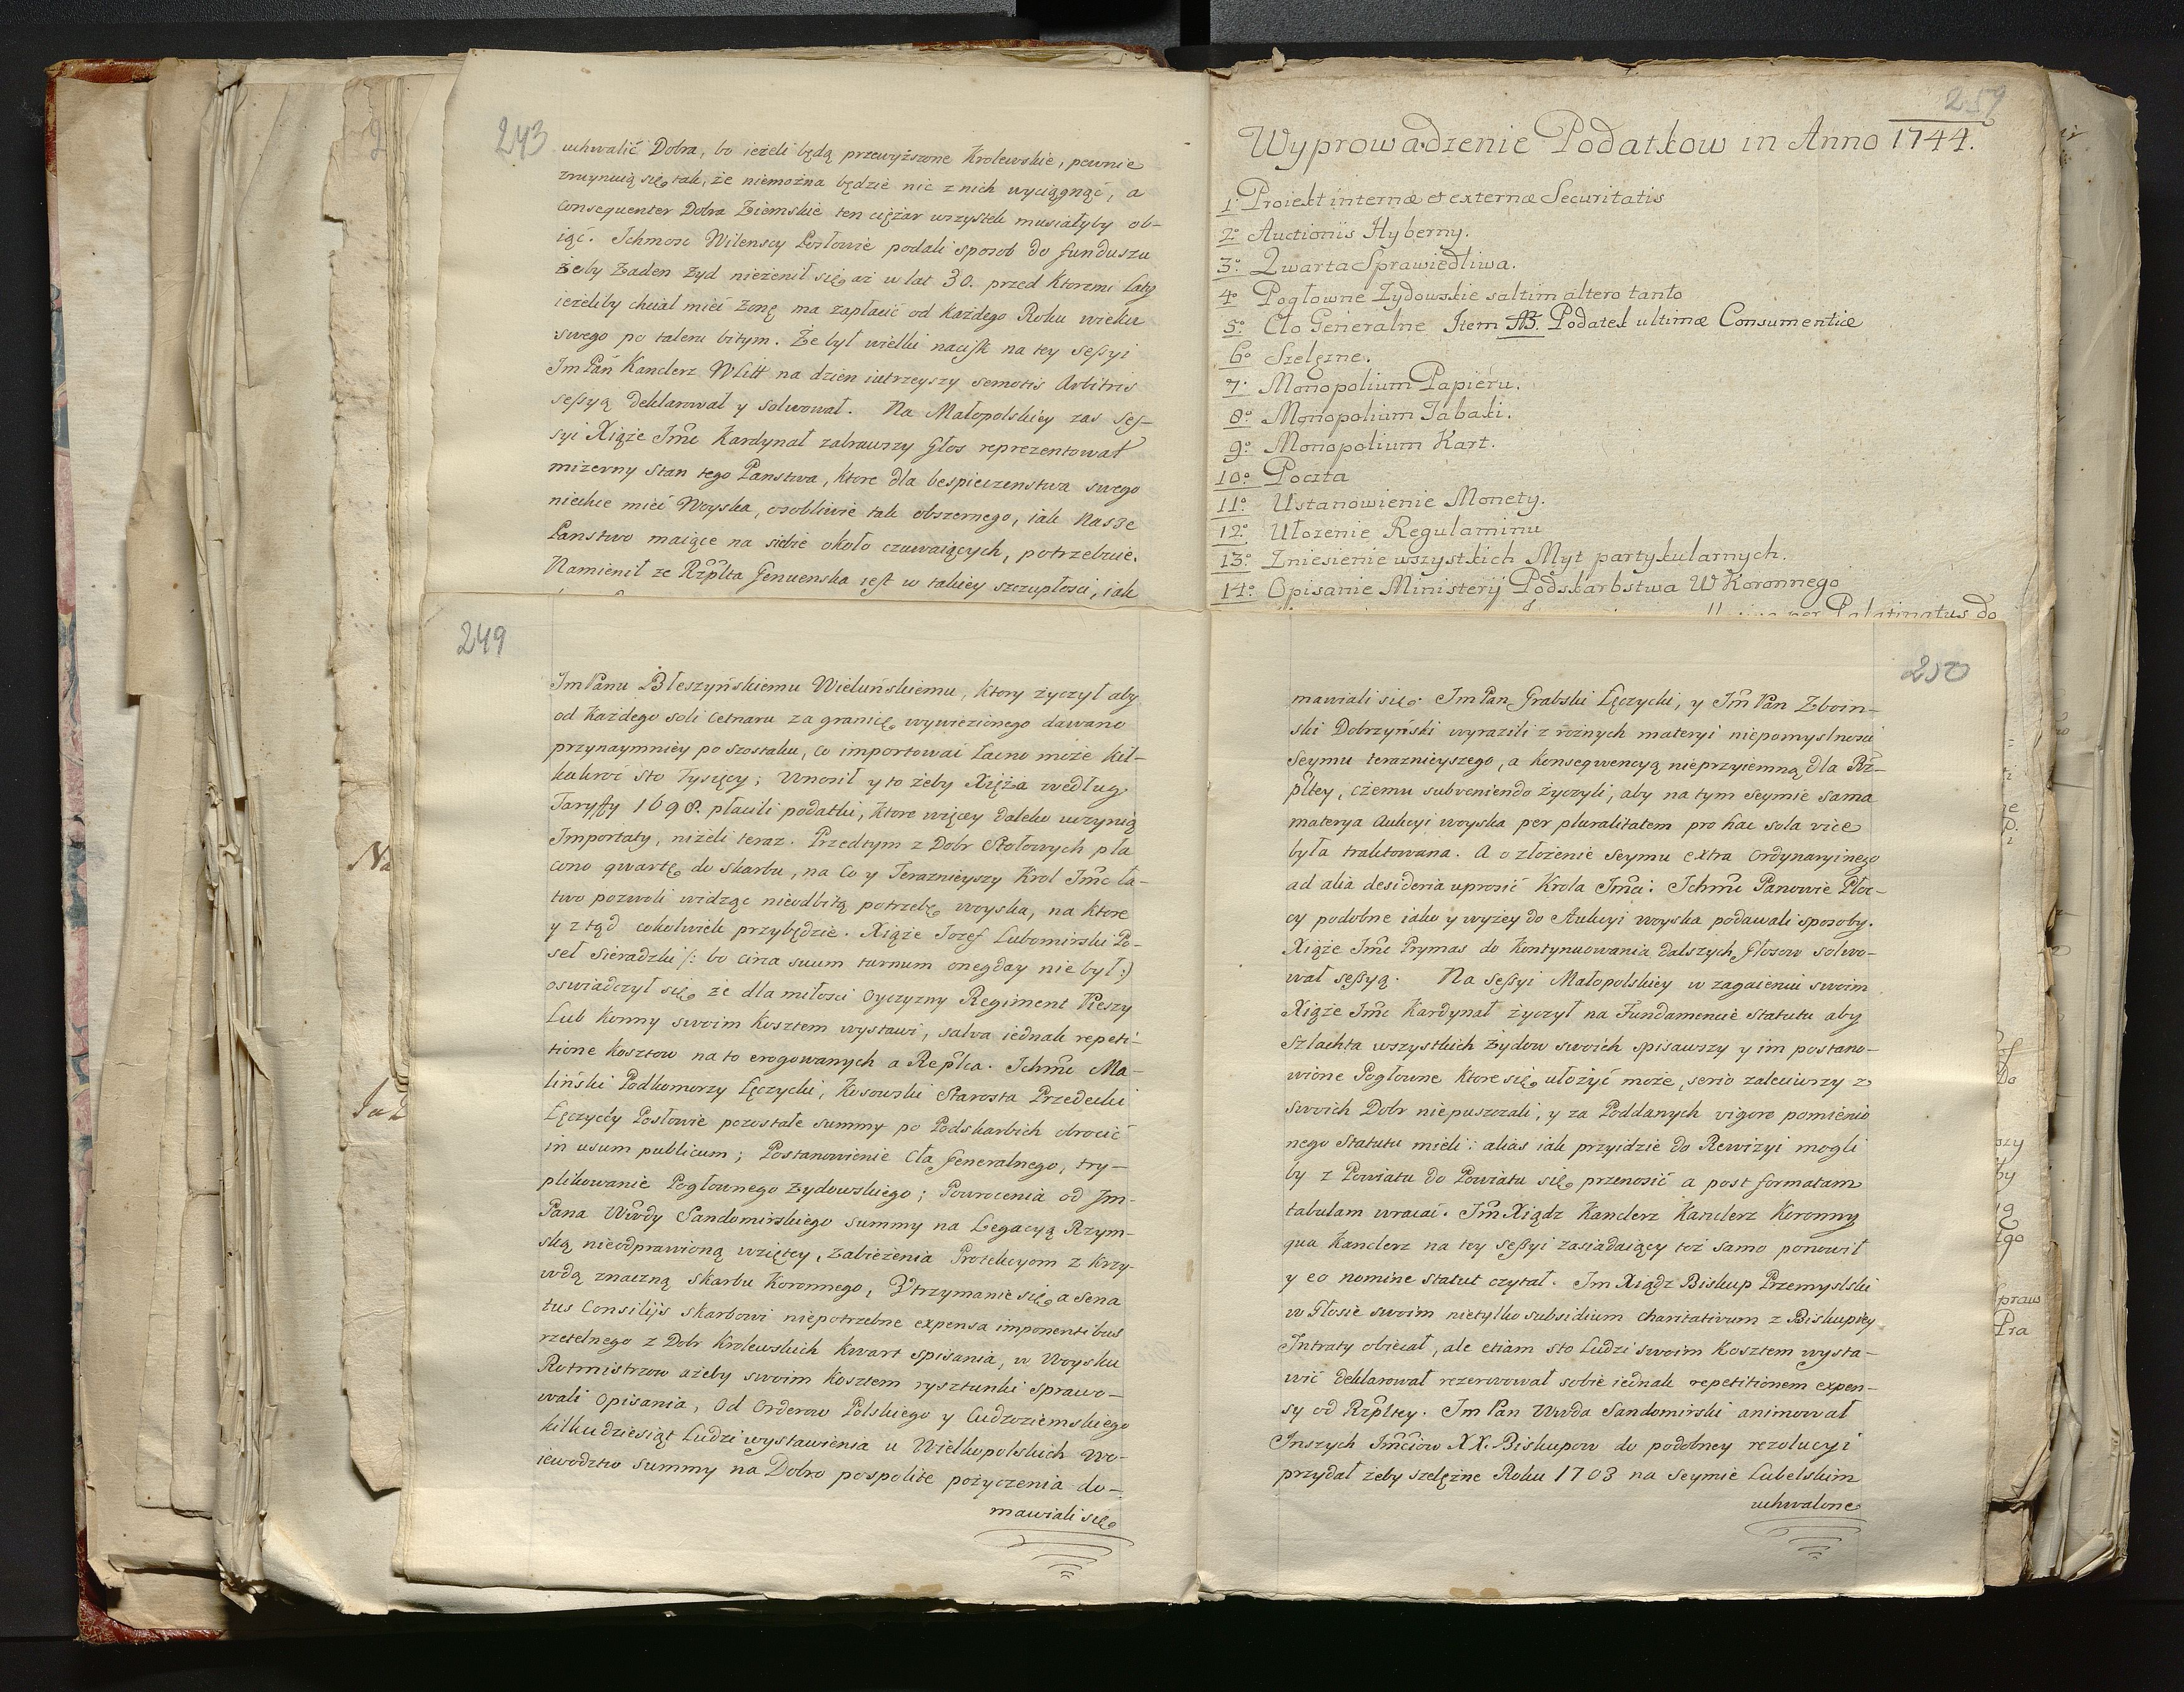 243
uchwalić Dobra, bo ieżeli będą przewyższone Krolewskie, pewnie
zruynuią się tak, że niemożna będzie nic z nich wyciągnąć, a
consequenter Dobra Ziemskie ten ciężar wszystek musiałyby ob-
iąć. Ichmosc Wilenscy Posłowie podali sposob do funduszu
żeby Zaden Zyd nieżenił się aż w lat 30. przed ktoremi laty
ieżeliby chciał mieć żonę ma zapłacić od każdego Roku wieku
swego po taleru bitym. Że był wielki nacisk na tey sessyi
Im Pan Kanclerz WLitt na dzien iutrzeyszy semotis Arbitris
sessyą deklarował y solwował. Na Małopolskiey zas ses-
syi Xiąże Imc Kardynał zabrawszy Głos reprezentował
mizerny Stan tego Panstwa, ktore dla bespieczenstwa swego
niechce mieć Woyska, osobliwie tak obszernego, iak Nasze
Panstwo maiące na siebie około czuwaiących, potrzebuie.
Namienił ze Rzplta Genuenska iest w takiey szczupłosci, iak
259
Wyprowadzenie Podatkow in Anno 1744.
1o Proiekt internæ et externæ Securitatis
2o Auctionis Hyberny.
3o Qwarta Sprawiedliwa.
4o Pogłowne Zydowskie saltim altero tanto
5o Cło Generalne Item NB. Podatek ultimæ Consumentiæ
6o Szelęzne.
7o Monopolium Papieru.
8o Monopolium Tabaki.
9o Monopolium Kart.
10o Poczta
11o Ustanowienie Monety.
12o Ułozenie Regulaminu
13o Zniesienie wszystkich Myt partykularnych.
14o Opisanie Ministerij Podskarbstwa W Koronnego
per Palatinatus do
249
Im Panu Błeszyńskiemu Wieluńskiemu, ktory życzył aby
od każdego soli cetnaru za granicę wywiezionego dawano
przynaymniey po szostaku, co importować łacno może kil-
kakroć sto Tysięcy; Wnosił y to żeby Xięża według
Taryffy 1698. płacili podatki, ktore więcey daleko uczynią
Importaty, niżeli teraz. Przedtym z Dobr Stołowych pła
cono qwartę do skarbu, na co y Teraznieyszy Krol Imc ła-
two pozwoli widząc nieodbitą potrzebę woyska, na ktore
y ztąd cokolwiek przybędzie. Xiąże Jozef Lubomirski Po-
seł Sieradzki /: bo circa suum turnum onegday nie był :/
oswiadczył się że dla miłosci Oyczyzny Regiment Pieszy
Lub Konny swoim Kosztem wystawi, salva iednak repeti-
tione Kosztow na to erogowanych a Repltca. Ichmc Ma-
liński Podkomorzy Łęczycki, Kosowski Starosta Przedecki
Łęczyccy Posłowie pozostałe summy po Podskarbich obrocić
in usum publicum; Postanowienie Cła Generalnego, try-
plikowanie Pogłownego Zydowskiego; Powrocenia od Im-
Pana Wwdy Sandomirskiego summy na Legacyą Rzym-
ską nieodprawioną wziętey, zabieżenia Protekcyom z Krzy-
wdą znaczną skarbu Koronnego, Wtrzymanie się a Sena
tus Consilijs skarbowi niepotrzebne expensa imponentibus
rzetelnego z Dobr Krolewskich Kwart spisania, w Woysku
Rotmistrzow ażeby swoim Kosztem rysztunki sprawo-
wali Opisania, Od Orderow Polskiego y Cudzoziemskiego
kilkudziesiąt Ludzi wystawienia u Wielkopolskich Wo-
iewodztw summy na Dobro pospolite pożyczenia do-
mawiali się
250
mawiali się. Im Pan Grabski Łęczycki, y Im Pan Zboin-
ski Dobrzyński wyrazili z rożnych materyi niepomyslnosci
Seymu teraznieyszego, a Konseqwencyą nieprzyiemną dla Rz-
pltey, czemu subveniendo życzyli, aby na tym Seymie sama
materya Aukcyi woyska per pluralitatem pro hac sola vice
była traktowana. A o złożenie Seymu extra Ordynaryinego
ad alia desideria uprosić Krola Imci. Ichmc Panowie Płoc-
cy podobne iako y wyżey do Aukcyi woyska podawali sposoby.
Xiąże Imc Prymas do Kontynuowania dalszych Głosow solwo-
wał sessyą. Na Sessyi Małopolskiey w zagaieniu swoim
Xiąże Imc Kardynał życzył na Fundamencie Statutu aby
Szlachta wszystkich Żydow swoich spisawszy y im postano-
wione Pogłowne ktore się ułożyć może, serio zaleciwszy z
swoich Dobr niepuszczali, y za Poddanych vigore pomienio
nego Statutu mieli: alias iak przyidzie do Rewizyi mogli
by z Powiatu do Powiatu się przenosić a post formatam
tabulam wracać. Im Xiądz Kanclerz Kanclerz Koronny
qua Kanclerz na tey sessyi zasiadaiący toż samo ponowił
y eo nomine Statut czytał. Im Xiądz Biskup Przemyslski
w Głosie swoim nietylko subsidium charitativum z Biskupiey
Intraty obiecał, ale etiam sto Ludzi swoim Kosztem wysta-
wić deklarował rezerwował sobie iednak repetitionem expen-
sy od Rzpltey. Im Pan Wwda Sandomirski animował
Inszych Imciow XX. Biskupow do podobney rezolucyi
przydał żeby szelężne Roku 1703 na Seymie Lubelskim
uchwalone